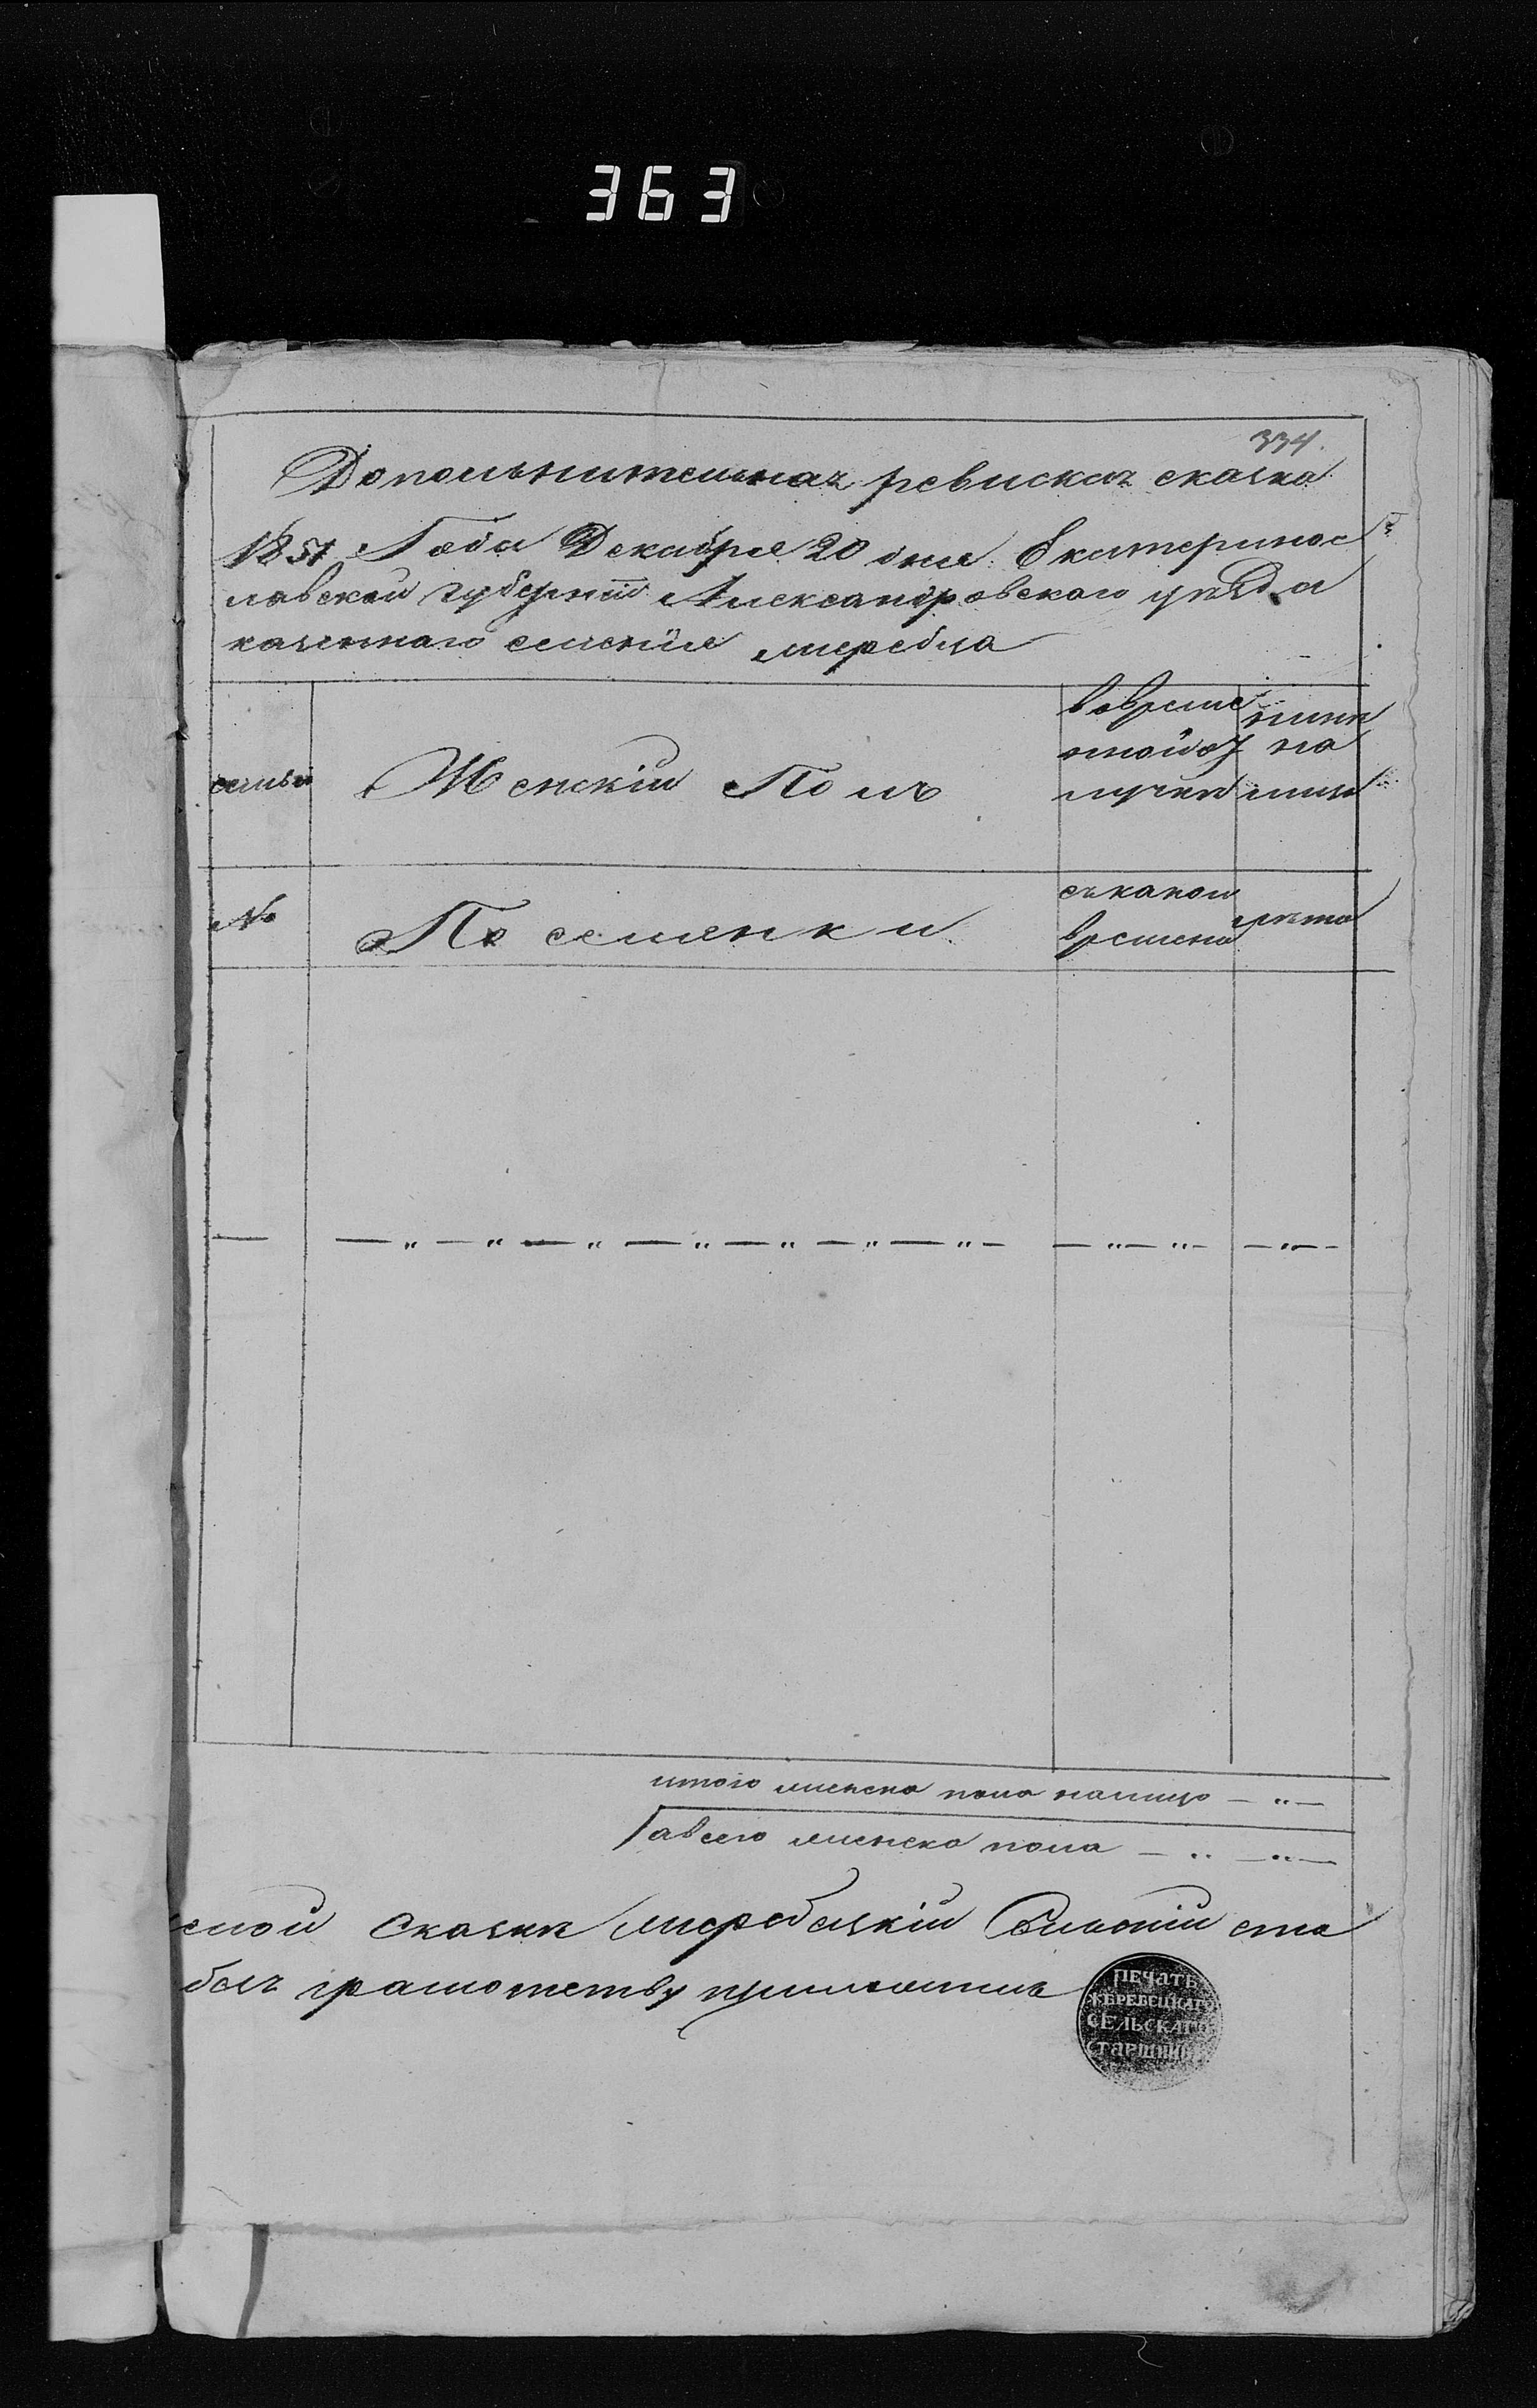 363
334.
Дополнителная ревиская сказка
1851 Года Декабря 20 дня Екатеринос
лавской губернїи Александровского уезда
казенного селенїя жеребца
семьи
Женскїй Полъ
вовреме
нной от
лучки
нине
на
лице
№
Поселянки
съ каком
времени
лета
итого женска пола налицо — „ —
авсего женско пола — „ — „ —
сказки жеребецкїй Сельскїй ста
грамотству приложилъ
ПЕЧАТЬ
ЖЕРЕБЕЦКАГО
СЕЛЬСКАГО
СТАРШИНЫ